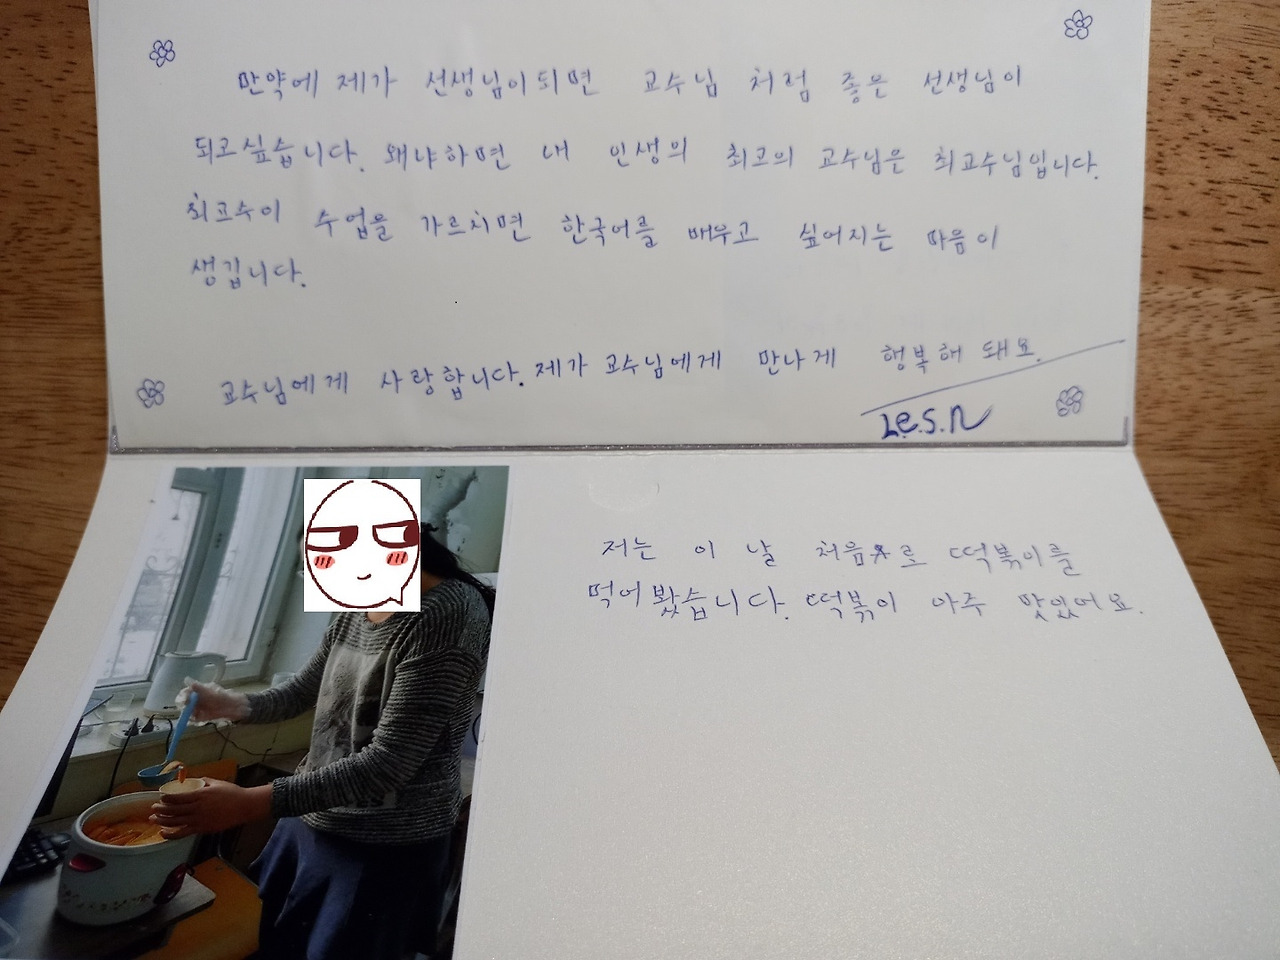 만약에 제가 선생님이되면 교수님 처럼 좋은 선생님이
되고싶습니다. 왜냐하면 내 인생의 최고의 교수님은 최교수님입니다.
최교수이 수업을 가르치면 한국어를 배우고 싶어지는 마음이
생깁니다.
교수님에게 사랑합니다. 제가 교수님에게 만나게 행복해 돼요.
Le.S.N
저는 이 날 처음로 떡볶이를
먹어봤습니다. 떡볶이 아주 맛있어요.